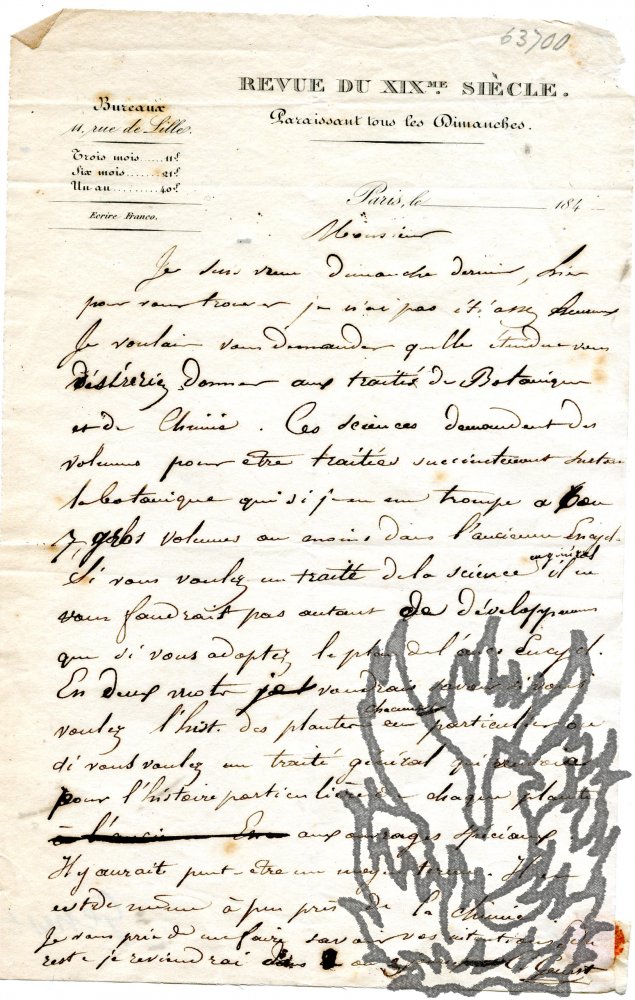 63700
REVUE DU XIXME SIÈCLE.
Paraissant tous les Dimanches.
Bureaux
11, rue de Lille.
Trois mois.....11f
Six mois.....21f
Un an........40f
Ecrire Franco.
Paris, le 184
Monsieur
Je suis venu dimanche dernier, hier
pour vous trouver je n'ai pas été assez heureux
Je voulais vous demander quelle étendue vous
désireriez donner aux traités de Botanique
et de Chimie. Ces sciences demandent des
volumes pour être traitées succinctement surtout
la botanique qui si je ne me trompe a 6 ou
7 gros volumes au moins dans l'ancienne Encycl.
Si vous voulez un traité de la science en général il ne
vous faudrait pas autant de développemens
que si vous adoptez le plan de l'anc. Encycl.
En deux mots je voudrais savoir si vous
voulez l'hist. des plantes chacune en particulier ou
si vous voulez un traité général qui renverrai
pour l'histoire particulière de chaque plante
aux ouvrages spéciaux
Il y aurait peut-être un moyen terme. Il en
est de même à peu près de la chimie
Je vous prie de me faire savoir vos intentions, du
reste je reviendrai dans